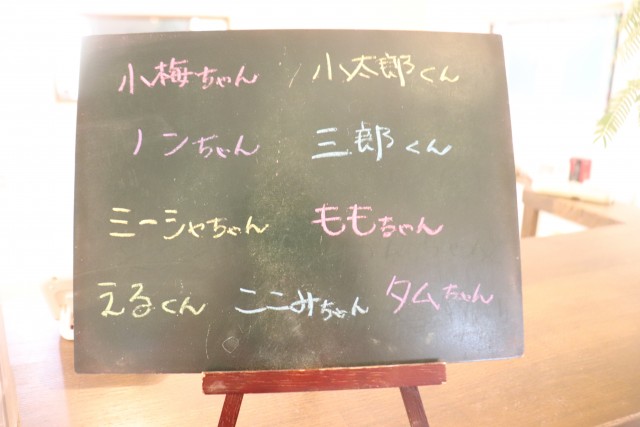 小梅ちゃん 小太郎くん
ノンちゃん 三郎くん
ミーシャちゃん ももちゃん
えるくん ここみちゃん タムちゃん